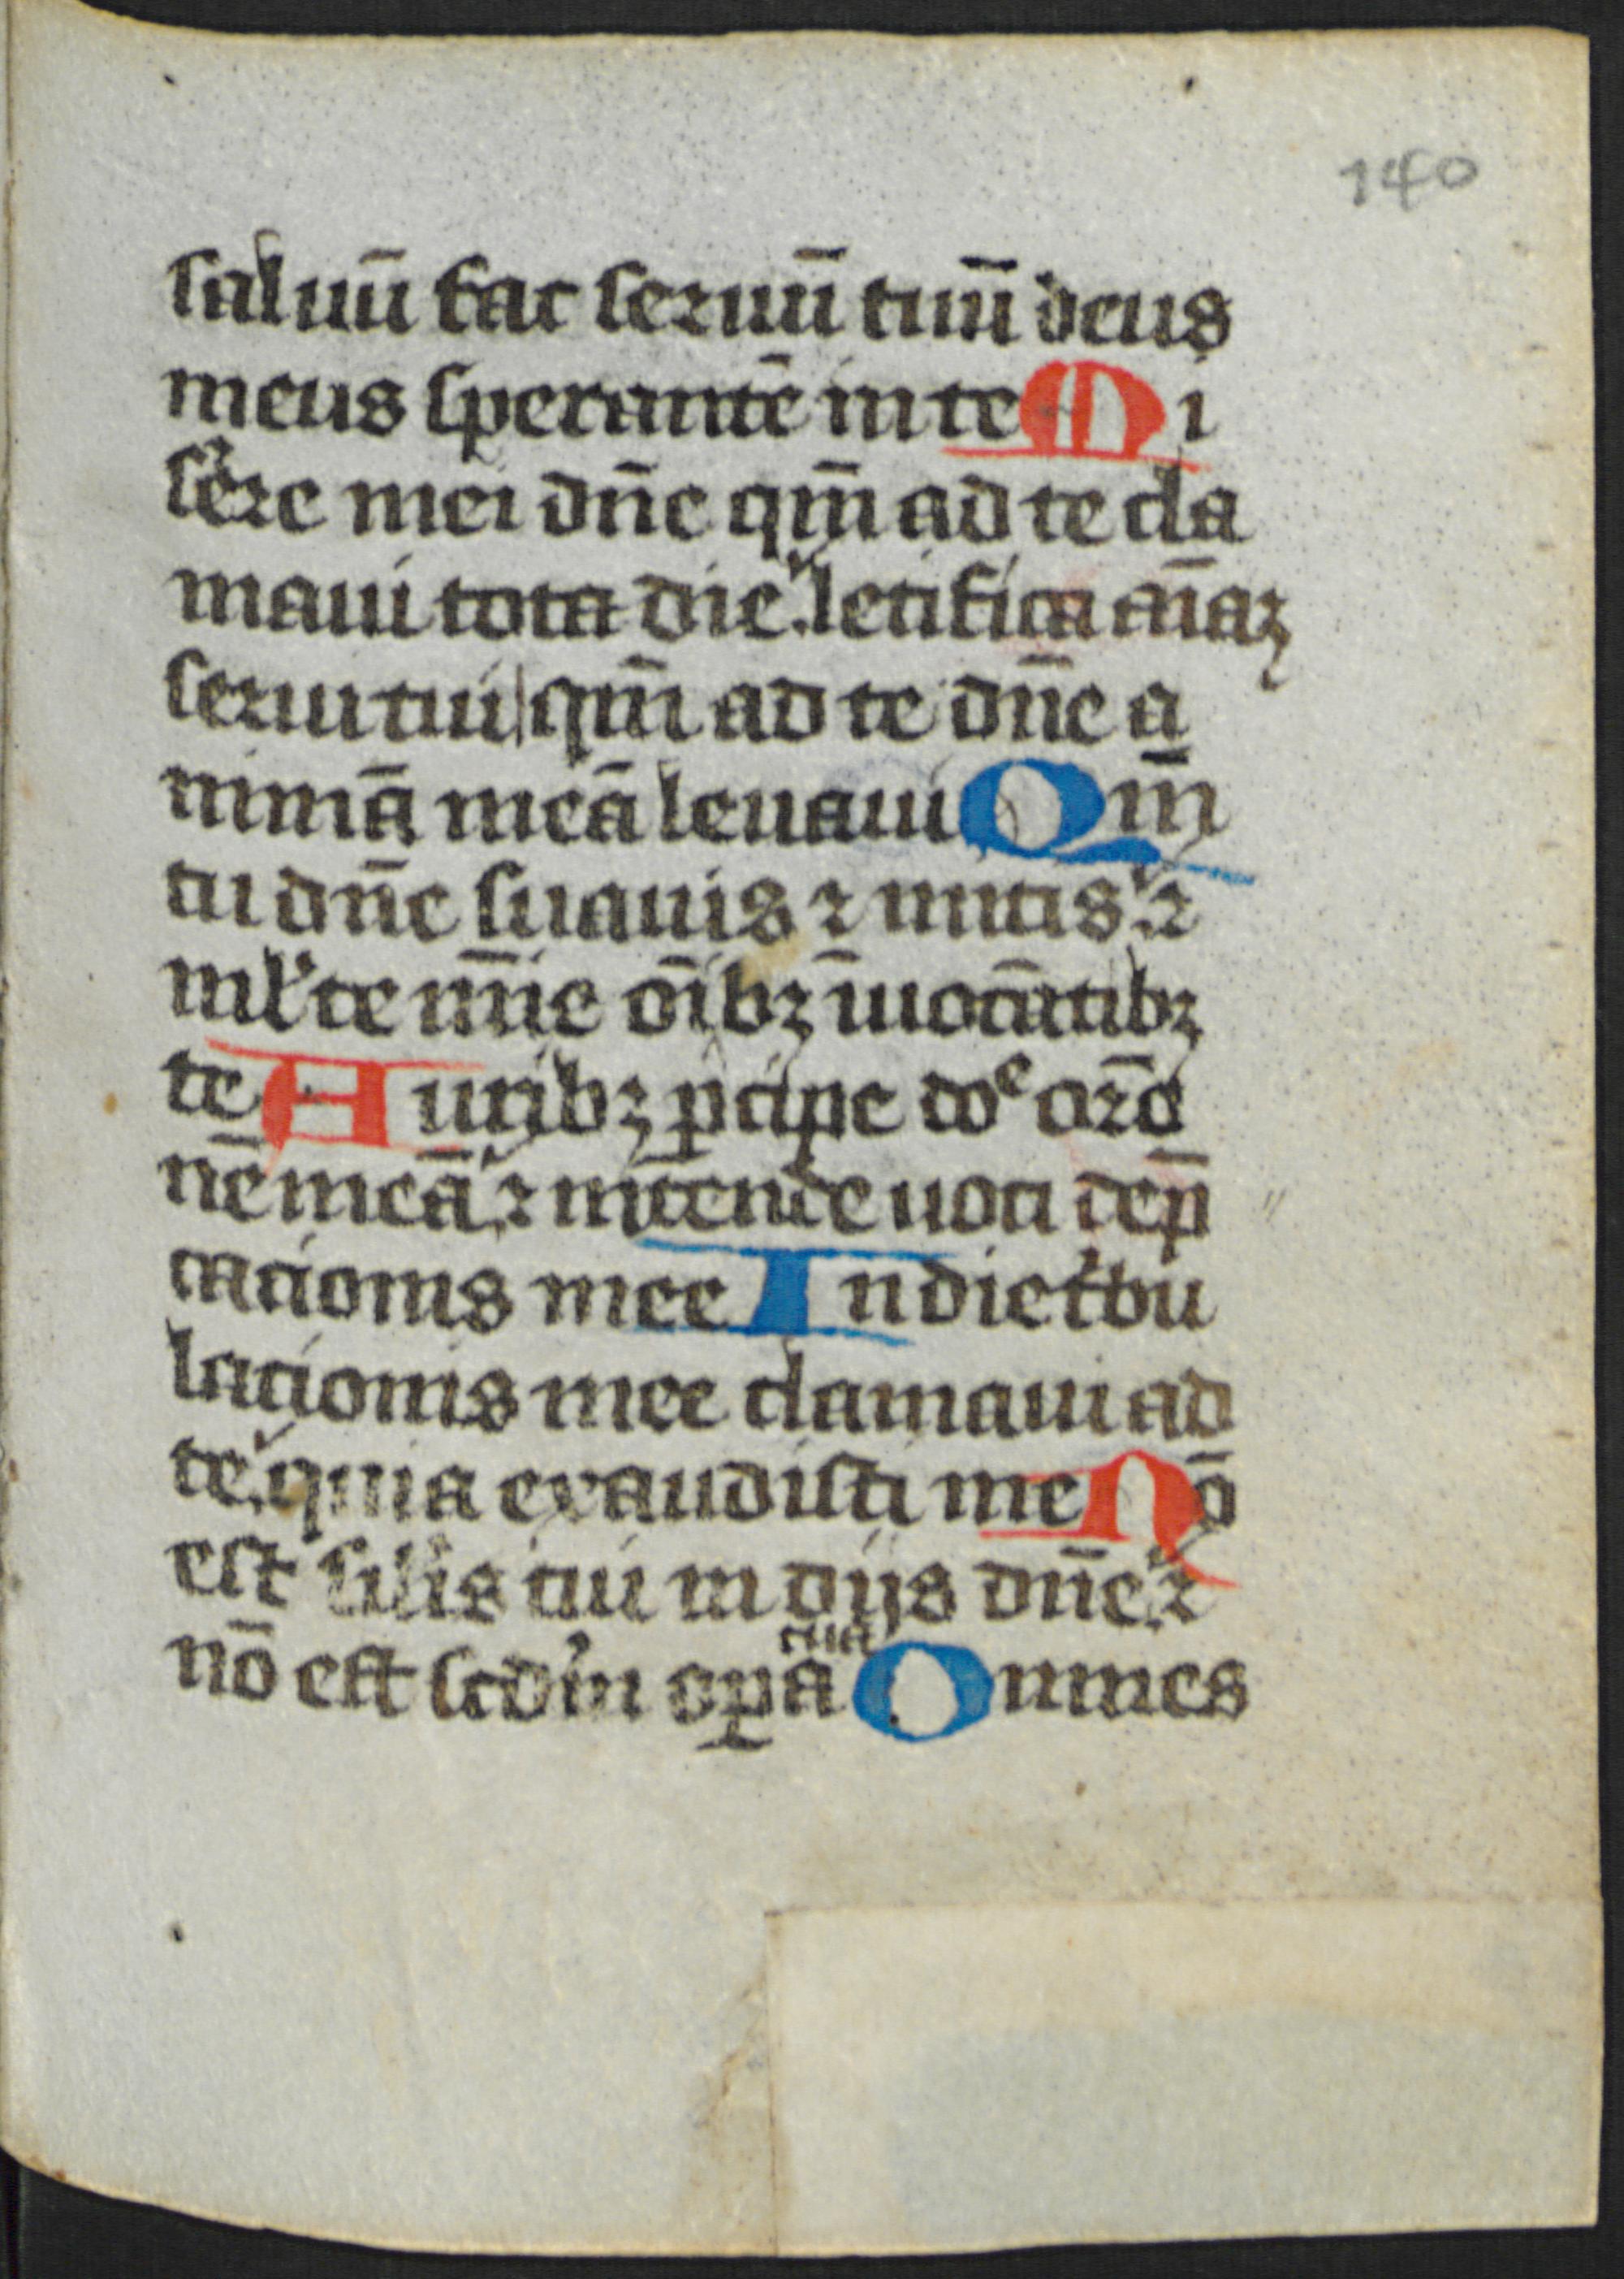 140
saluū fac seruū tuū deus
meus sperantē in te Mi
sere mei dn̄e qm̄ ad te cla
maui tota die letifica aīaꝫ
serui tui qm̄ ad te dn̄e a
nimā meā leuaui Qm̄
tu dn̄e suauis ⁊ mitis ⁊
ml̓te mīe oībꝫ īuocātibꝫ
te Auribꝫ ꝑcipe dōe orō
nē meā ⁊ intende uoci dep̄
cacionis mee In die t͛bu
lacionis mee clamaui ad
te quia exaudisti me Nō
est sīlis tui in dijs dn̄e ⁊
nō est scd̓m oꝑa tua Omnes